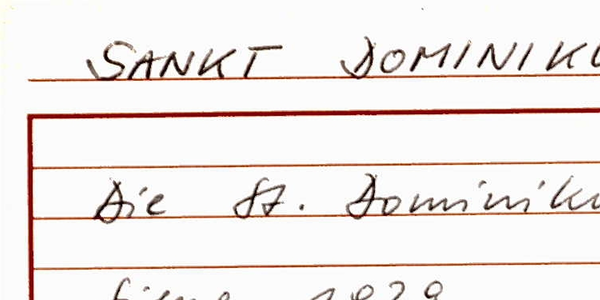 SANKT DOMINIKU
Die St. Dominiku
1929